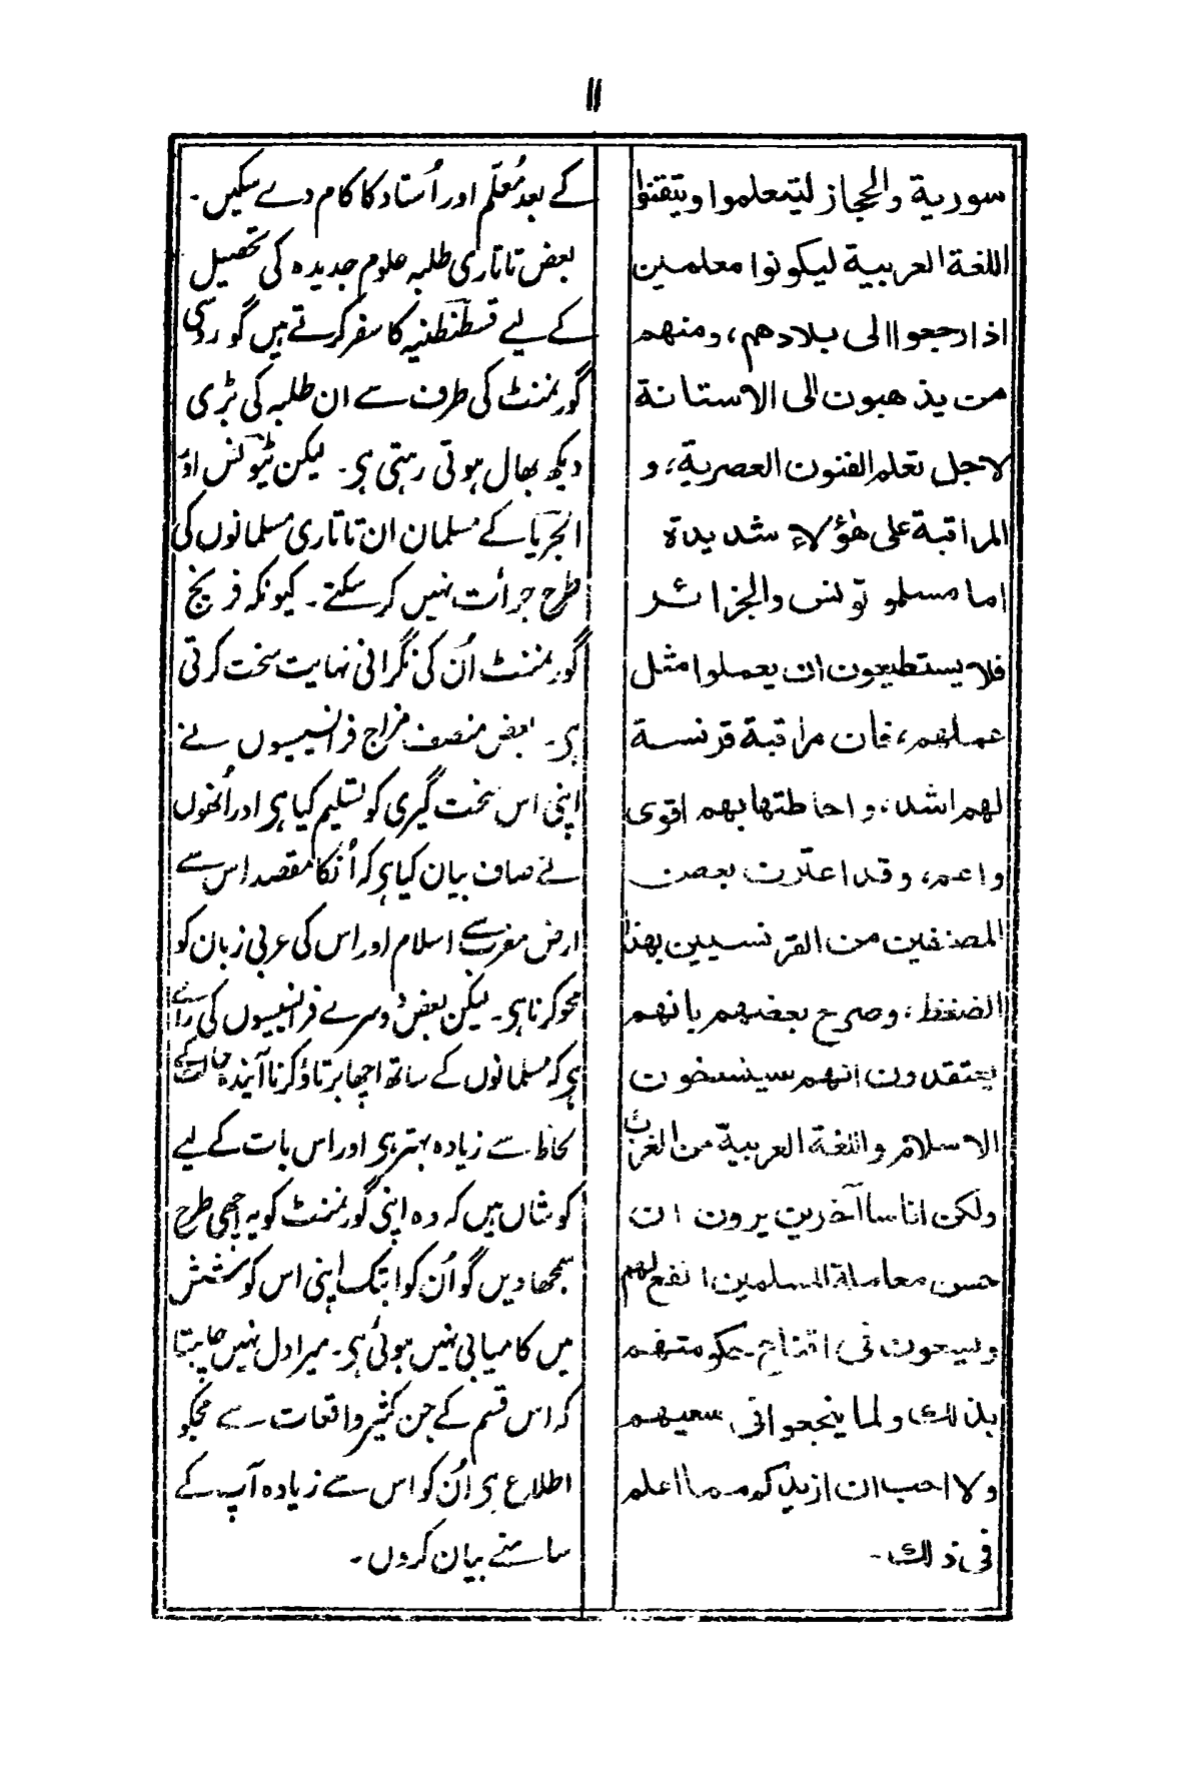 ۱۱
سورية والحجاز ليتمعلموا ويتقنوا
اللغة العربية ليكونوا معلمين
اذا رجعوا الى بلادهم، ومنهم
من يذهبون الى الاستانة
لاجل تعلم الفنون العصرية، و
المراقبة على هؤلاء شديدة
اما مسلمو تونس والجزائر
فلا يستطيعون ان يعملوا مثل
عملهم، فان مراقبة فرنسة
لهم اشد، واحاطتها بهم اقوى
واعم، وقد اعترف بعض
المصنفين من الفرنسيين بهذا
الضغط، وصرح بعضهم بانهم
يعتقدون انهم سينسخون
الاسلام واللغة العربية من الغرب
ولكن اناسا آخرين يرون ان
حسن معاملة المسلمين انفع لهم
ويسعون فى اقناع حكومتهم
بذلك ولما ينجعوا فى سعيهم
ولا احب ان ازيدكم مما اعلم
فى ذلك۔
کے بعد مُعلّم اور اُستاد کا کام دے سکیں۔
بعض تاتاری طلبہ علوم جدیدہ کی تحصیل
کے لیے قسطنطنیہ کا سفر کرتے ہیں گو روسی
گورنمنٹ کی طرف سے ان طلبہ کی بڑی
دیکھ بھال ہوتی رہتی ہی۔ لیکن ٹیونس اور
الجریا کے مسلمان ان تاتاری مسلمانوں کی
طرح جرأت نہیں کر سکتے۔ کیونکہ فرنچ
گورنمنٹ اُن کی نگرانی نہایت سخت کرتی
ہی۔ بعض منصف مزاج فرانسیسوں نے
اپنی اس سخت گیری کو تسلیم کیا ہی اور اُنھوں
نے صاف بیان کیا ہی کہ اُنکا مقصد اس سے
ارض مغرب سے اسلام اور اس کی عربی زبان کو
محو کرنا ہی۔ لیکن بعض دوسرے فرانسیسوں کی رائے
ہی کہ مسلمانوں کے ساتھ اچھا برتاؤ کرنا آیندہ حالت کے
لحاظ سے زیادہ بہتر ہی اور اس بات کے لیے
کوشاں ہیں کہ وہ اپنی گورنمنٹ کو یہ اچھی طرح
سمجھا دیں گو اُن کو ابتک اپنی اس کوشش
میں کامیابی نہیں ہوئی ہی۔ میرا دل نہیں چاہتا
کہ اس قسم کے جن کثیر واقعات سے مجکو
اطلاع ہی اُن کو اس سے زیادہ آپ کے
سامنے بیان کروں۔